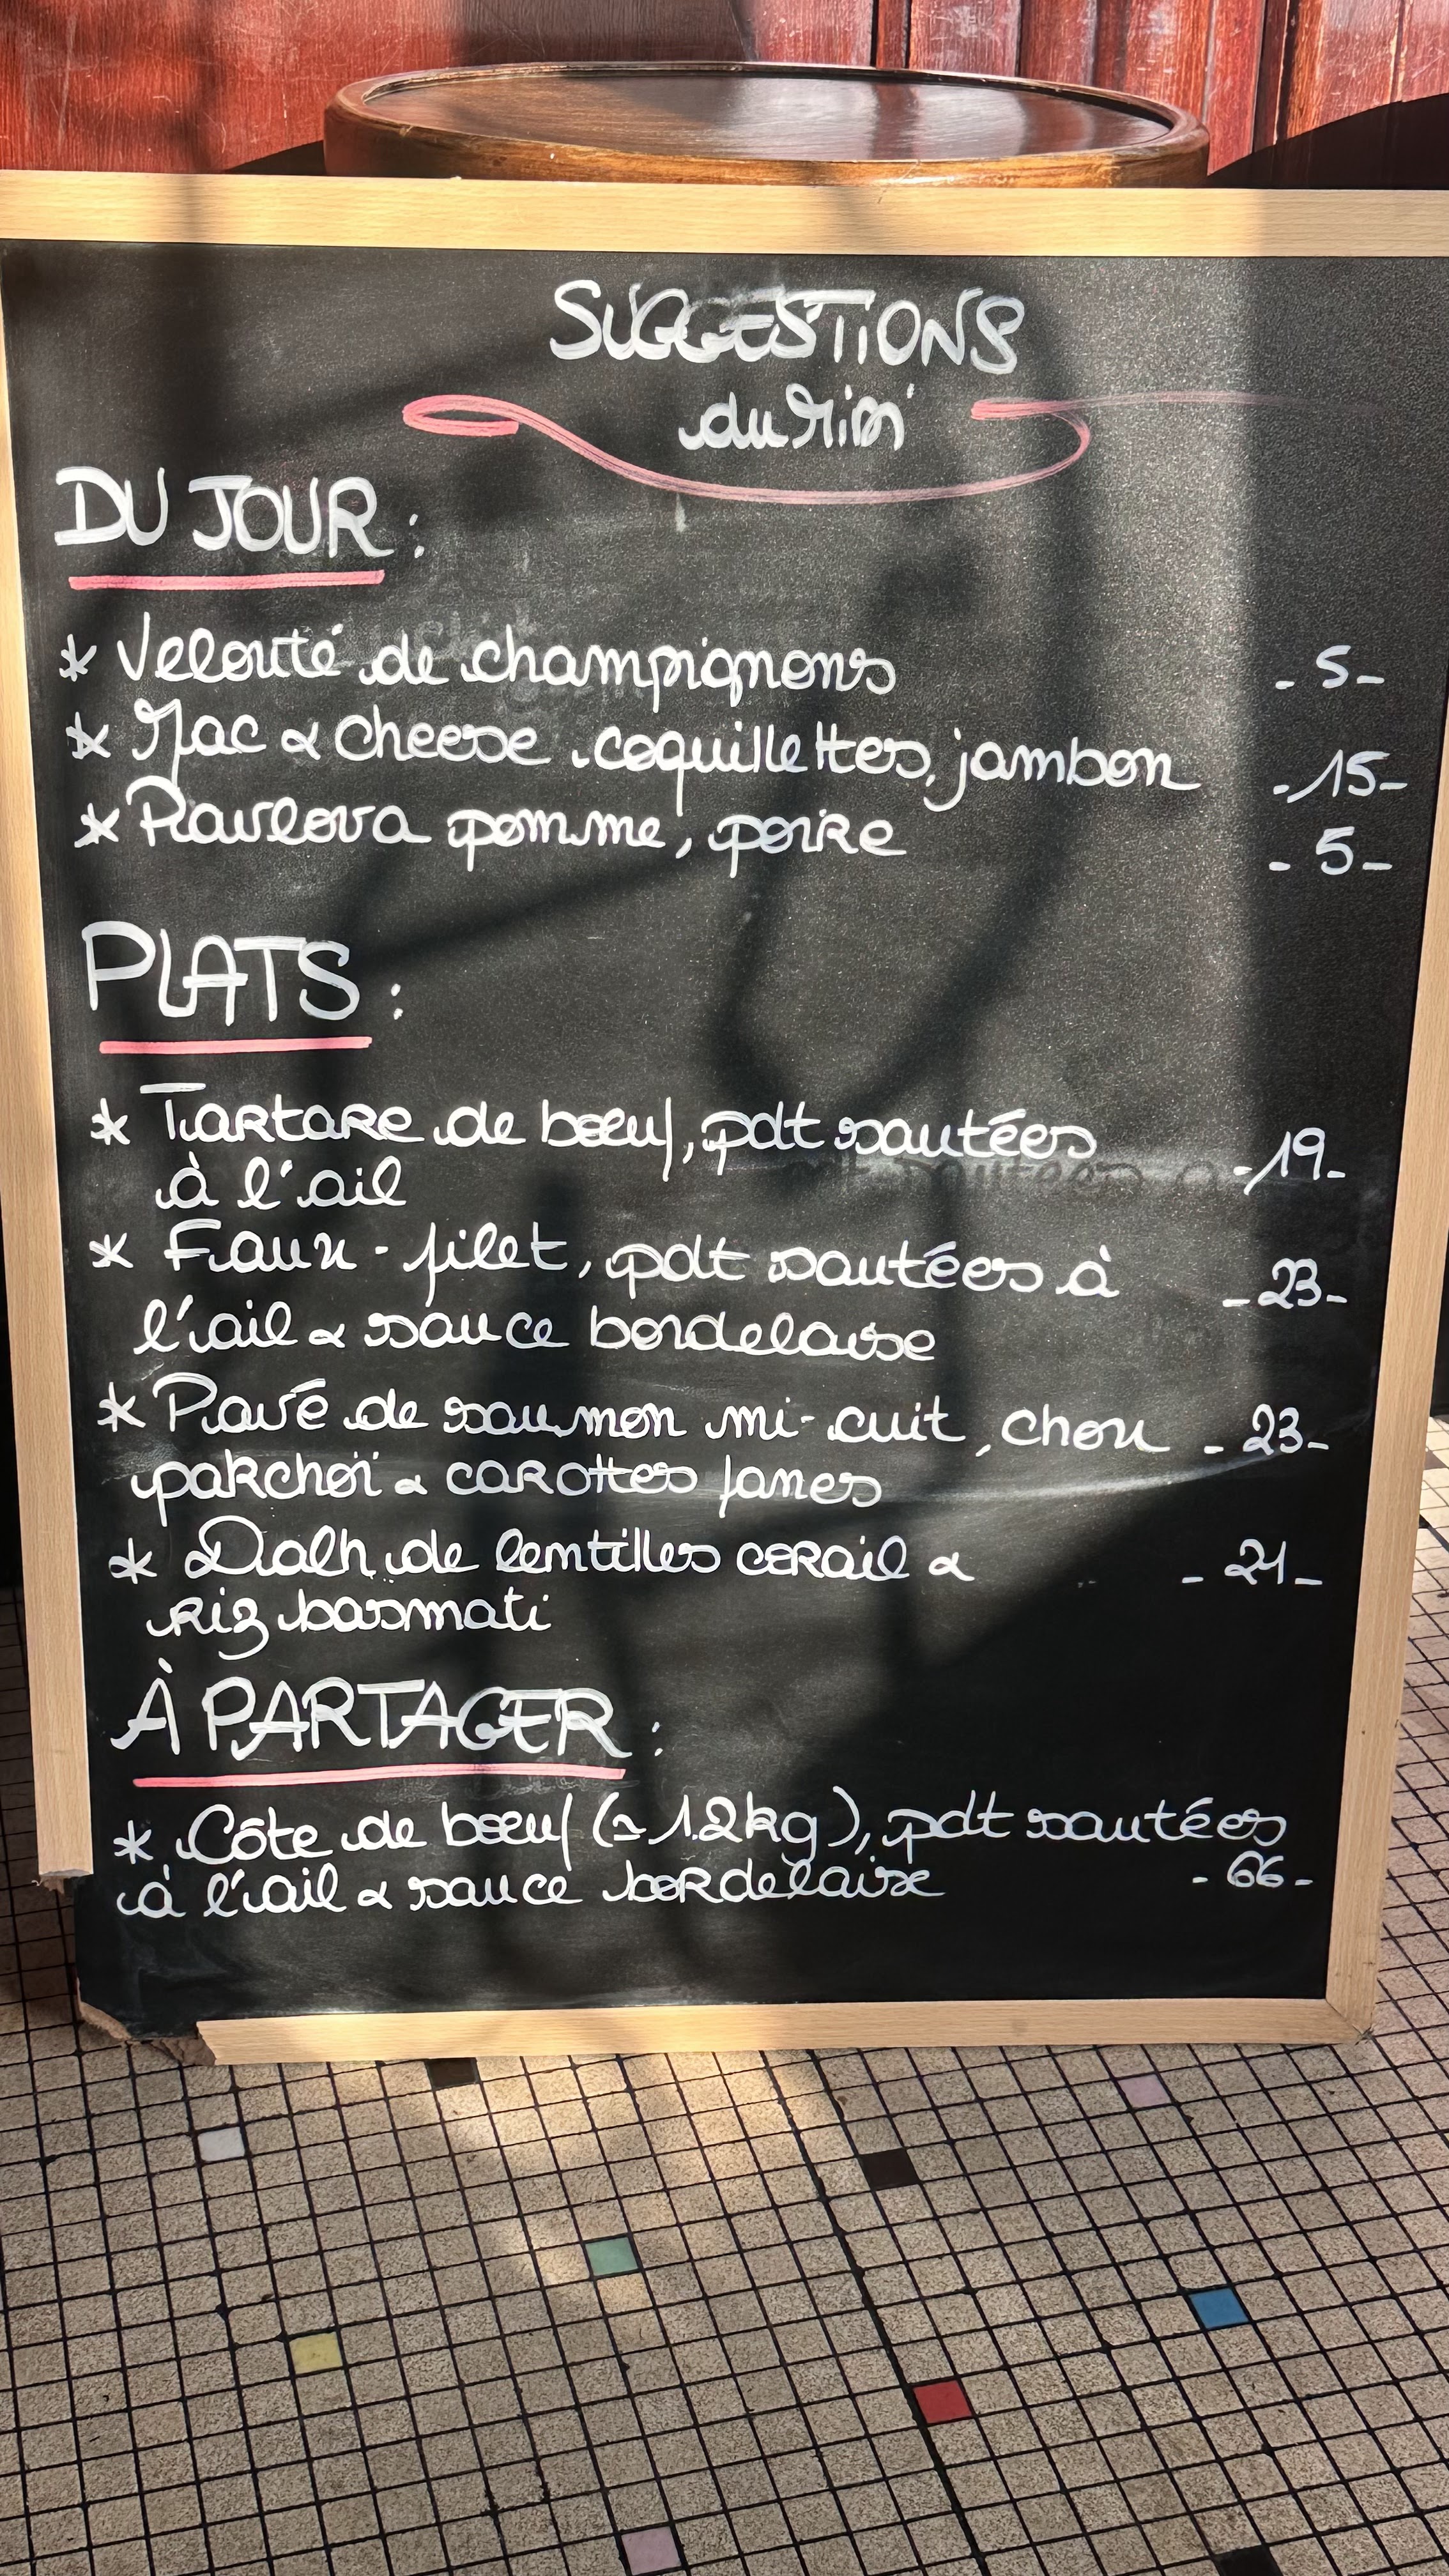 SUGGESTIONS
du
DU JOUR :
* Velouté de champignons - 5 -
* Mac & cheese coquillettes, jambon - 15 -
* Pavlova pomme, poire - 5 -
PLATS :
* Tartare de bœuf, pdt sautées - 19 -
à l'ail
* Faux-filet, pdt sautées à - 23 -
l'ail & sauce bordelaise
* Pavé de saumon mi-cuit, chou - 23 -
pakchoï & carottes fanes
* Dalh de lentilles corail & - 21 -
riz basmati
À PARTAGER :
* Côte de bœuf (≃ 1.2kg), pdt sautées
à l'ail & sauce bordelaise - 66 -